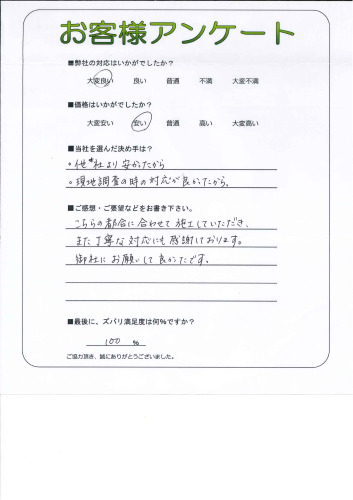 お客様アンケート
■弊社の対応はいかがでしたか?
大変良い 良い 普通 不満 大変不満
■価格はいかがでしたか?
大変安い 安い 普通 高い 大変高い
■当社を選んだ決め手は?
。他社より安かったから
。現地調査の時の対応が良かったから。
■ご感想・ご要望などをお書き下さい。
こちらの都合に合わせて施工していただき、
また丁寧な対応にも感謝しております。
御社にお願いして良かったです。
■最後に、ズバリ満足度は何%ですか?
100 %
ご協力頂き、誠にありがとうございました。